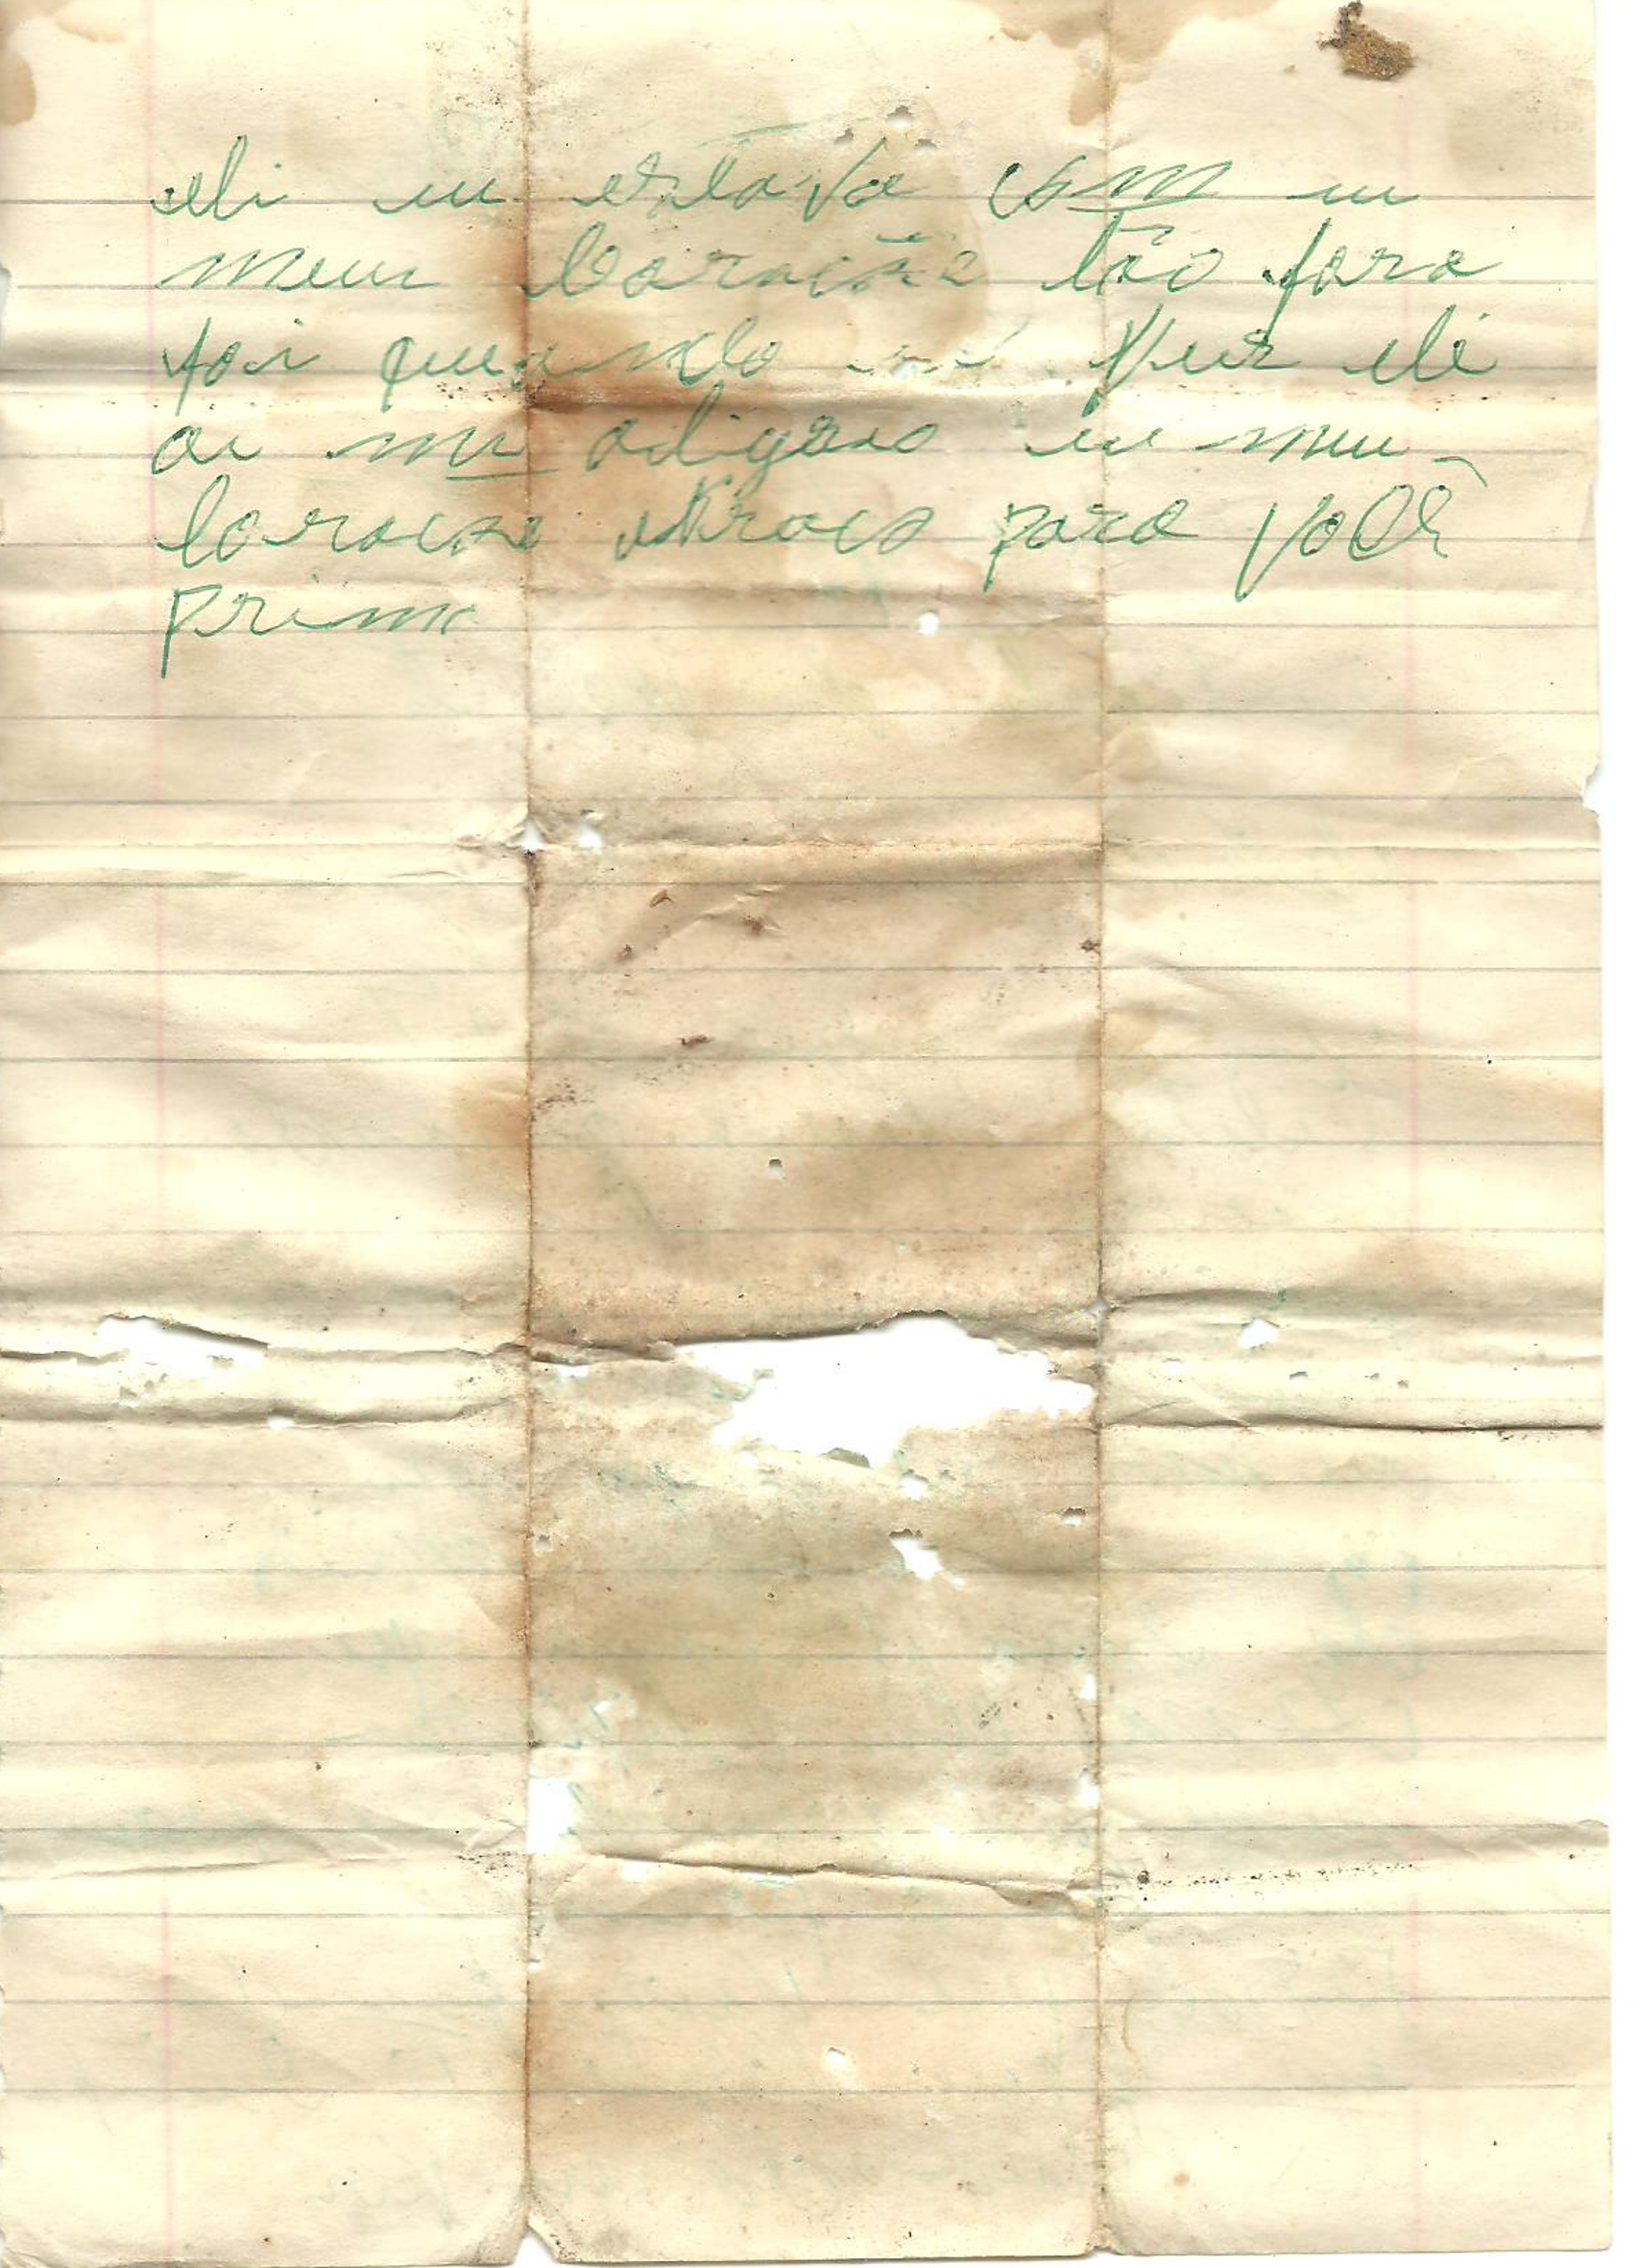 eli eu estava com eu
meu Coração tão fora
foi quando eu Ver eli
ai mi aligro eu meu
Coracão abraco para você
primo